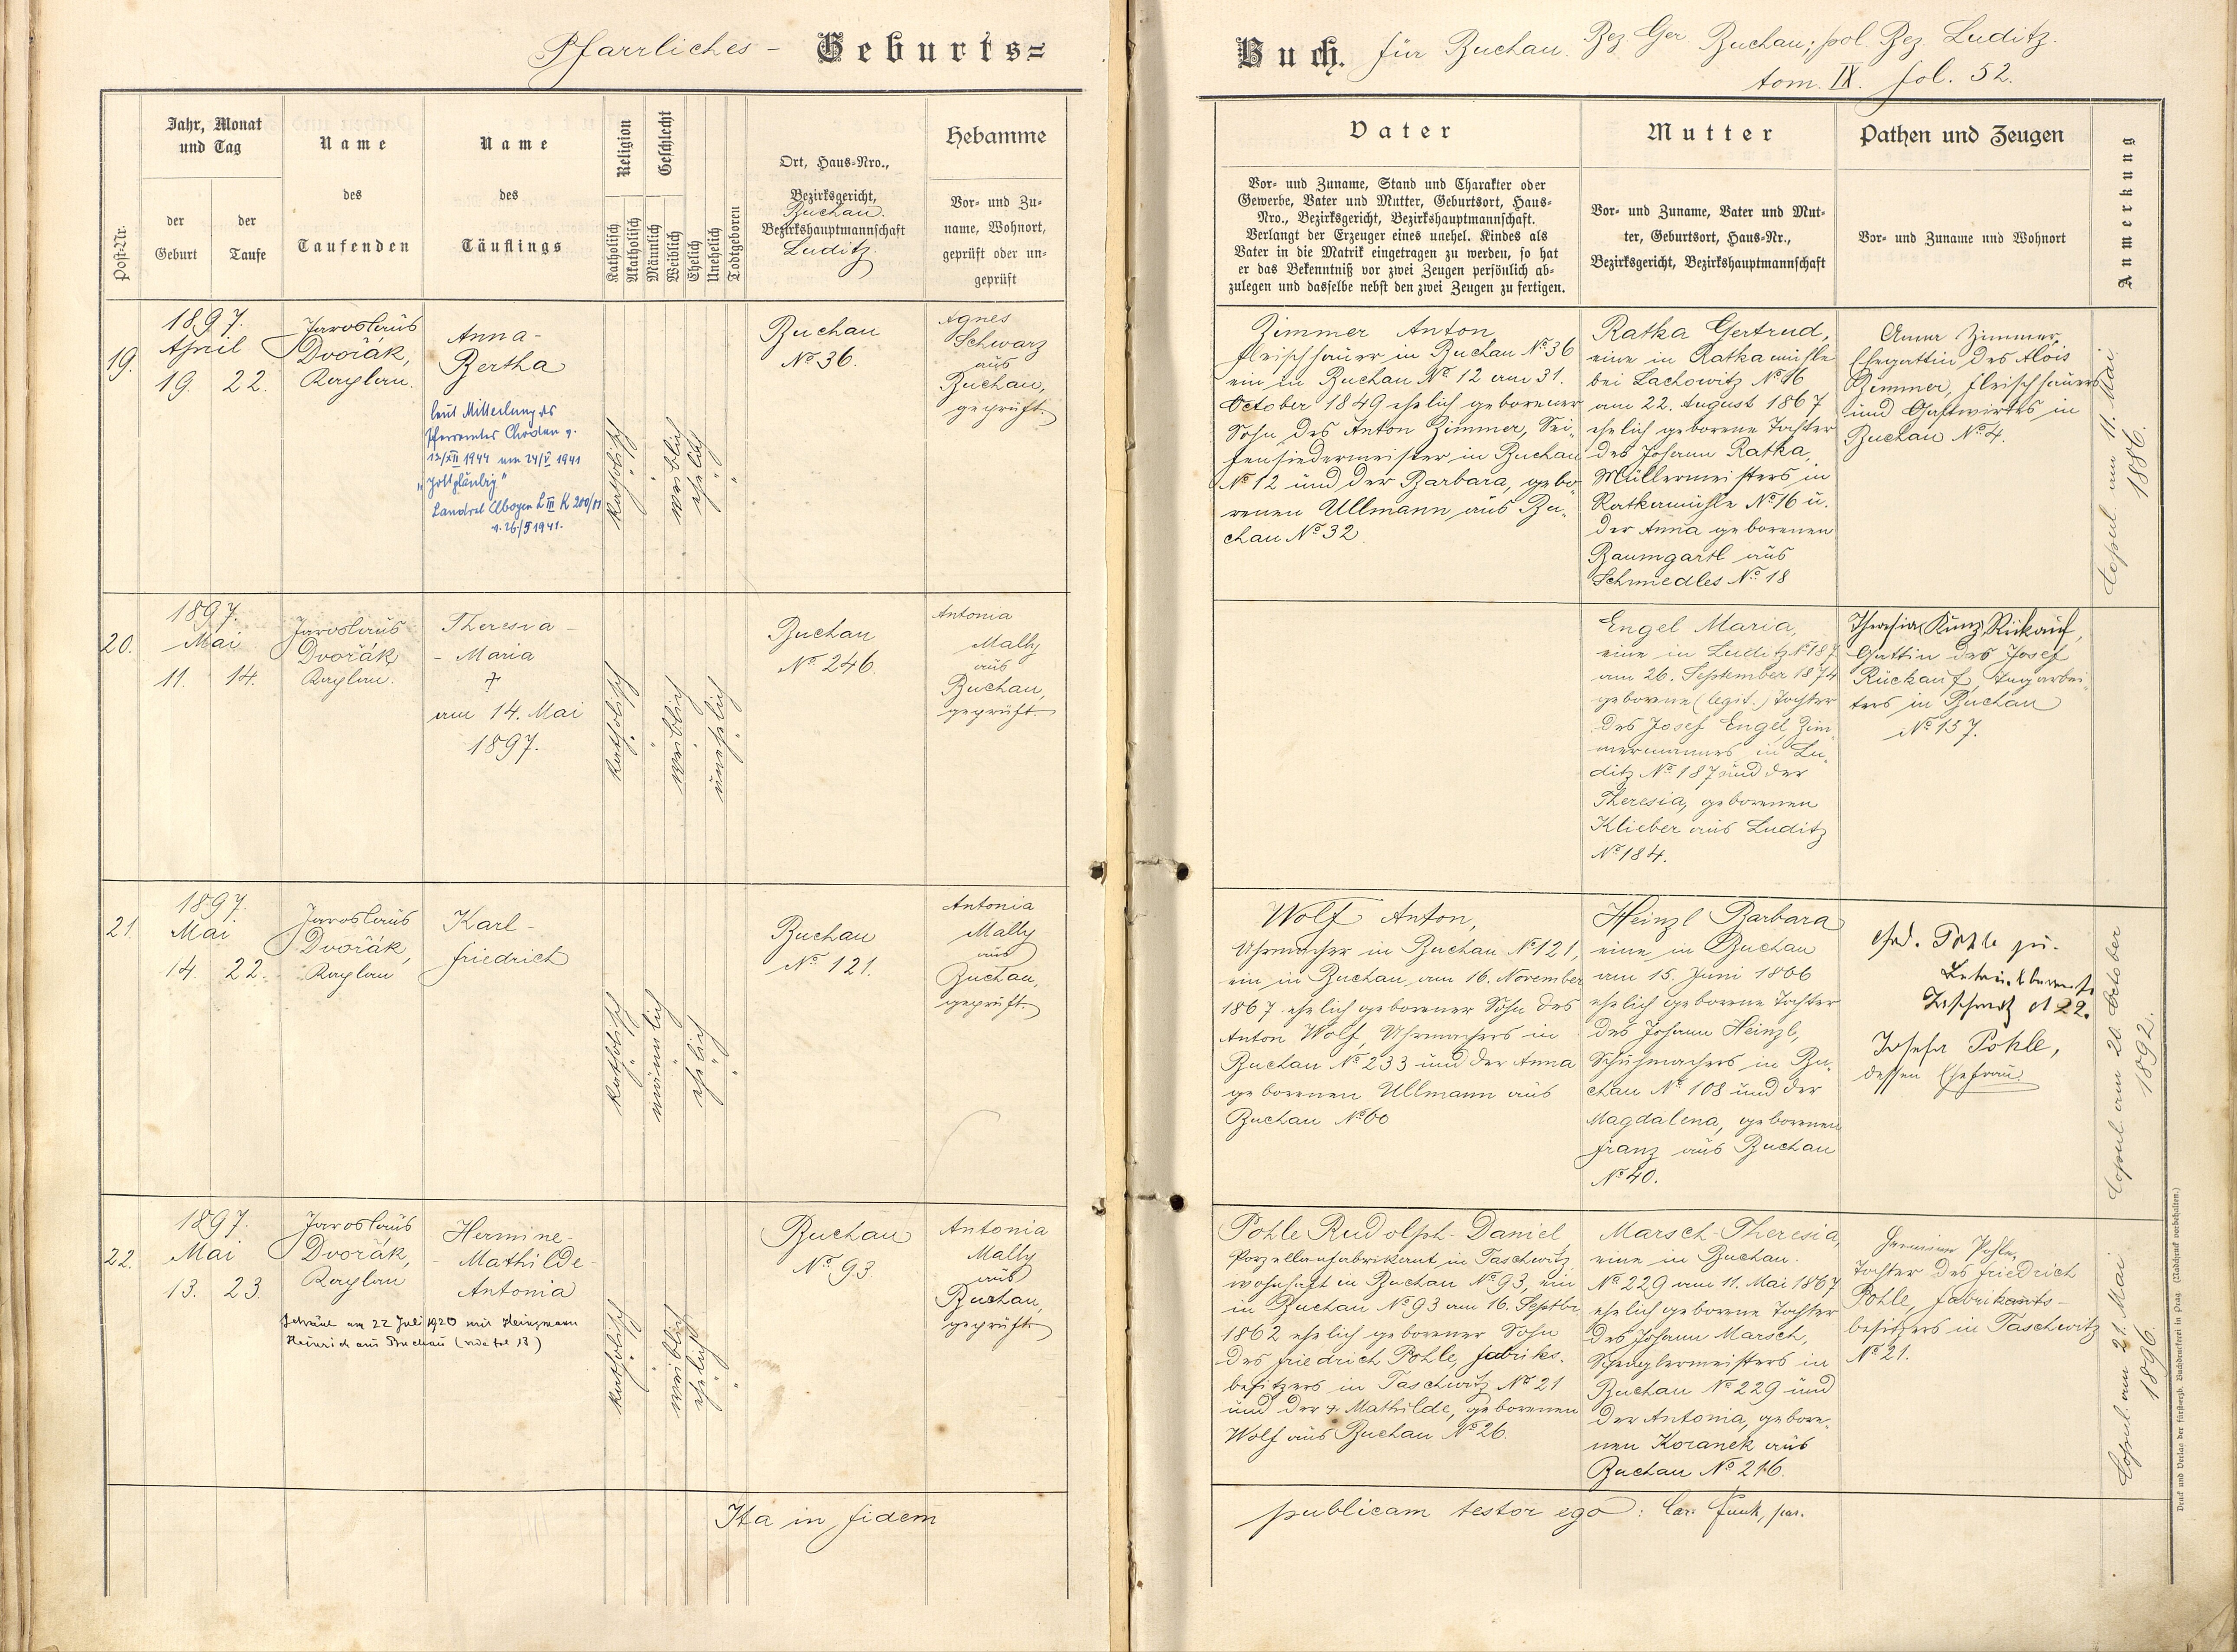 Pfarrliches - Geburts=
Jahr, Monat
und Tag
Name
Name
Religion
Geschlecht
Hebamme
Post-Nr.
der
Geburt
der
Taufe
des
Taufenden
des
Täuflings
Katholisch
Akatholisch
Männlich
Weiblich
Ehelich
Unehelich
Todtgeboren
Ort, Haus=Nro.,
Bezirksgericht,
Buchau.
Bezirkshauptmannschaft
Luditz
Vor= und Zu=
name, Wohnort,
geprüft oder un=
geprüft
19.
1897.
April
19. 22.
Jaroslaus
Dvořák,
Kaplan.
Anna -
Bertha
laut Mitteilung des
Pfarramtes Chodau v.
13/XII 1944 am 24/V 1941
"gottgläubig"
Landrat Elbogen L III K 200/01
v. 26/5 1941.
katholisch
weiblich
ehelich
Buchau
No 36.
Agnes
Schwarz
aus
Buchau,
geprüft.
20.
1897.
Mai
11. 14.
Jaroslaus
Dvořák
Kaplan.
Theresia -
- Maria
†
am 14. Mai
1897.
katholisch
weiblich
unehelich
Buchau
No. 246.
Antonia
Mally
aus
Buchau,
geprüft.
21.
1897.
Mai
14. 22.
Jaroslaus
Dvořák,
Kaplan
Karl -
Friedrich
katholisch
männlich
ehelich
Buchau
No 121.
Antonia
Mally
aus
Buchau,
geprüft
22.
1897.
Mai
13. 23.
Jaroslaus
Dvořák,
Kaplan
Hermine -
- Mathilde -
Antonia
Getraut am 22 Juli 1920 mit Heinzmann
Heinrich aus Buchau (vide fol 13)
katholisch
weiblich
ehelich
Buchau
No 93
Antonia
Mally
aus
Buchau,
geprüft
Ita in fidem
Buch. für Buchau. Bez Ger Buchau; pol Bez. Luditz.
tom. IX. fol. 52.
Vater
Mutter
Pathen und Zeugen
Anmerkung
Vor= und Zuname, Stand und Charakter oder
Gewerbe, Vater und Mutter, Geburtsort, Haus=
Nro., Bezirksgericht, Bezirkshauptmannschaft.
Verlangt der Erzeuger eines unehel. Kindes als
Vater in die Matrik eingetragen zu werden, so hat
er das Bekenntniß vor zwei Zeugen persönlich ab=
zulegen und dasselbe nebst den zwei Zeugen zu fertigen.
Vor= und Zuname, Vater und Mut=
ter, Geburtsort, Haus=Nr.,
Bezirksgericht, Bezirkshauptmannschaft
Vor= und Zuname und Wohnort
Zimmer Anton,
Fleischhauer in Buchau No 36
ein in Buchau No. 12 am 31.
October 1849 ehelich geborener
Sohn des Anton Zimmer, Sei=
fensiedermeister in Buchau
No 12 und der Barbara, gebo=
renen Ullmann aus Bu=
chau No 32.
Ratka Gertrud,
eine in Ratkamühle
bei Lachowitz No 16
am 22. August 1867
ehelich geborene Tochter
des Johann Ratka,
Müllermeisters in
Ratkamühle No 16 u.
der Anna geborenen
Baumgartl aus
Schmedles No 18
Anna Zimmer,
Ehegattin des Alois
Zimmer, Fleischhauers
und Gastwirtes in
Buchau No 4.
Copul. am 11. Mai
1886.
Engel Maria,
eine in Luditz No 187
am 26. September 1874
geborene (legit.) Tochter
des Josef Engel, Zim=
mermannes in Lu=
ditz No 187 und der
Theresia, geborenen
Klieber aus Luditz
No 184.
Theresia (Kunz) Rückauf,
Gattin des Josef
Rückauf, Tagarbei=
ters in Buchau
No 157.
Wolf Anton,
Uhrmacher in Buchau No 121,
ein in Buchau am 16. November
1867 ehelich geborener Sohn des
Anton Wolf, Uhrmachers in
Buchau No 233 und der Anna
geborenen Ullmann aus
Buchau No 60
Heinzl Barbara
eine in Buchau
am 15. Juni 1866
ehelich geborene Tochter
des Johann Heinzl,
Schuhmachers in Bu=
chau No 108 und der
Magdalena, geborenen
Franz aus Buchau
No 40.
Pohle jun.
No 22.
Josefa Pohle,
dessen Ehefrau.
Copul. am 20. October
1892.
Pohle Rudolph Daniel,
Porzellanfabrikant in Taschwitz
wohnhaft in Buchau No 93, ein
in Buchau No 93 am 16. Septbr.
1862 ehelich geborener Sohn
des Friedrich Pohle, Fabriks=
besitzers in Taschwitz No 21
und der † Mathilde, geborenen
Wolf aus Buchau No 26.
Marsch Theresia,
eine in Buchau.
No 229 am 11. Mai 1867
ehelich geborene Tochter
des Johann Marsch,
Spenglermeisters in
Buchau No 229 und
der Antonia, gebore=
nen Koranek aus
Buchau No 216.
Hermine Pohle,
Tochter des Friedrich
Pohle, Fabrikants-
besitzers in Taschwitz
No 21.
Copul. am 21. Mai
1896.
publicam testor ego: Car. Funk, par.
Druck und Verlag der fürsterzb. Buchdruckerei in Prag. (Nachdruck vorbehalten.)